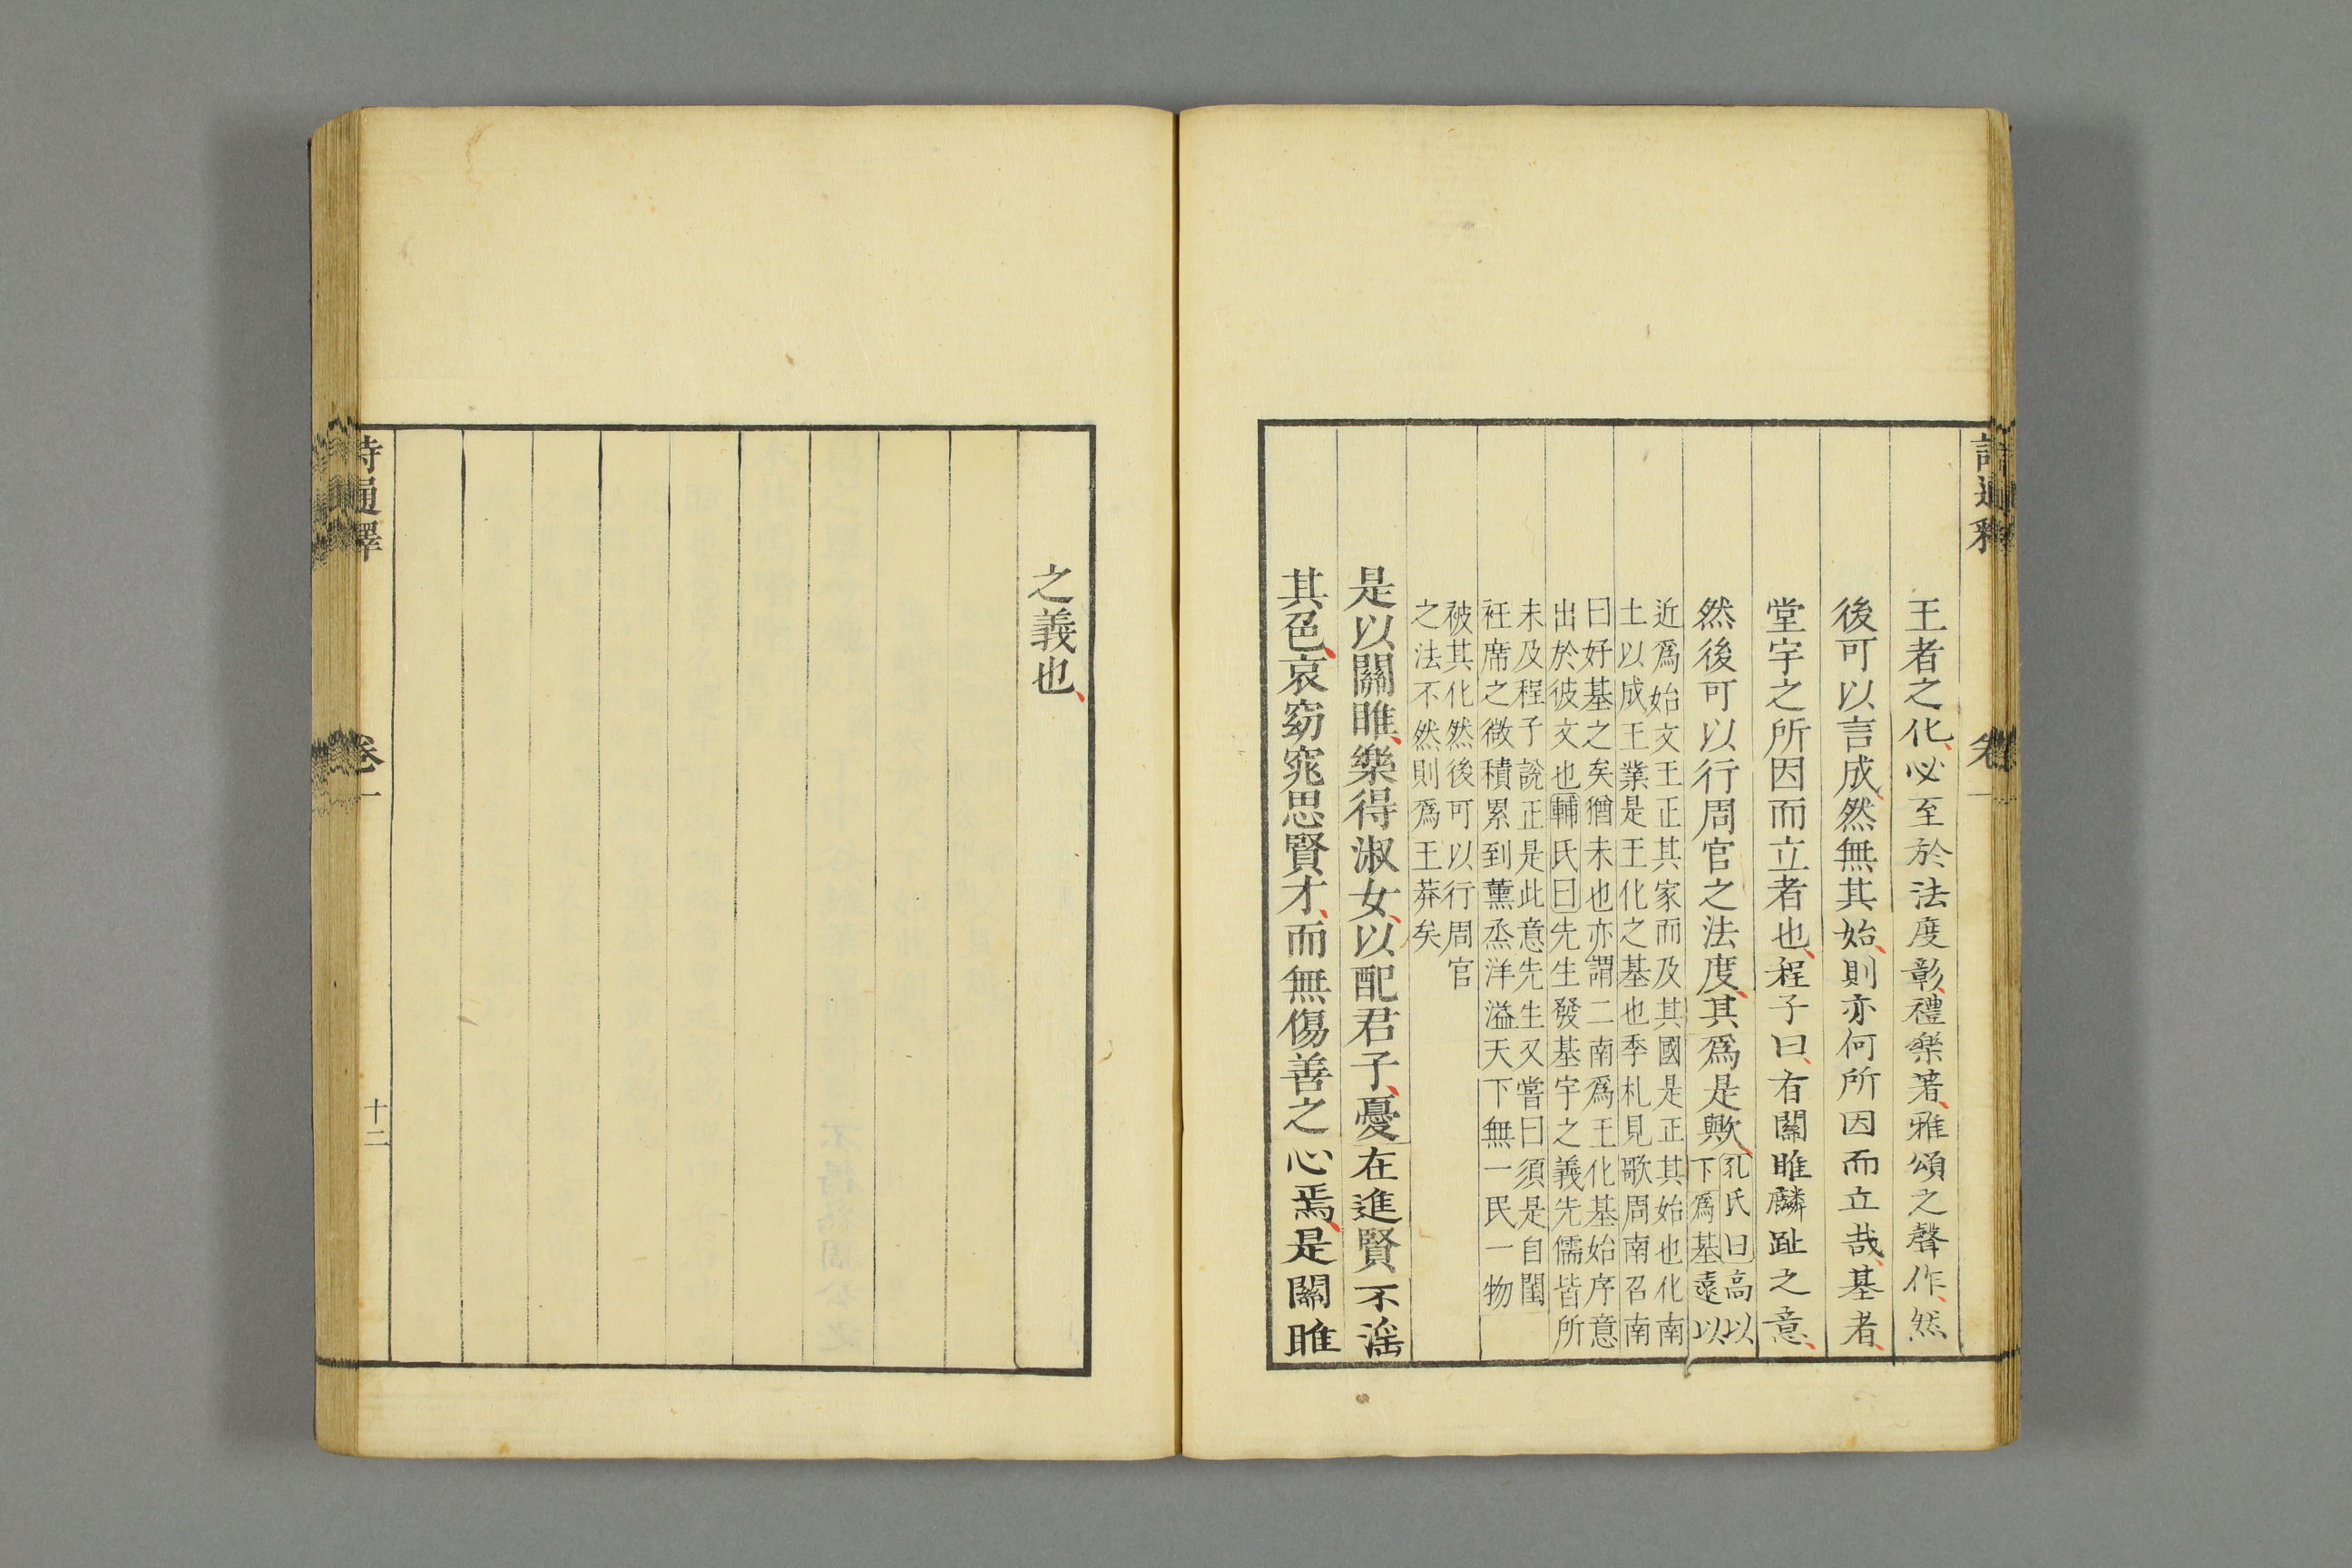 王者之化必至於法度彰禮樂著雅頌之聲作然
後可以言成然無其始則亦何所因而立哉基者
堂宇之所因而立者也程子曰有關雎麟趾之意
然後可以行周官之法度其爲是歟
孔氏曰高以
下爲基遠以
近爲始文王正其家而及其國是正其始也化南
土以成王業是王化之基也季札見歌周南召南
曰好基之矣猶未也亦謂二南爲王化基始序意
出於彼文也輔氏曰先生發基宇之義先儒皆所
未及程子說正是此意先生又嘗曰須是自閨
衽席之微積累到薰烝洋溢天下無一民一物
被其化然後可以行周官
之法不然則爲王莽矣
是以關雎樂得淑女以配君子憂在進賢不淫
其色哀窈窕思賢才而無傷善之心焉是關雎
之義也
詩通釋
卷一
十二